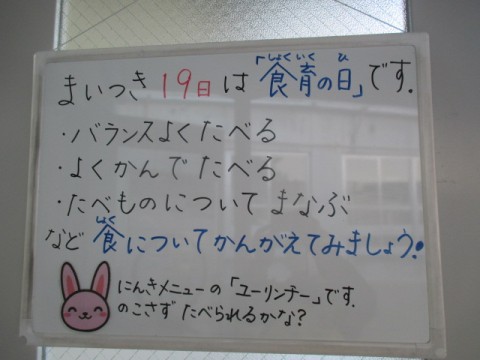 まいつき19日は「食育の日」です.
しょくいく ひ
・バランスよくたべる
・よくかんでたべる
・たべものについてまなぶ
など食についてかんがえてみましょう!
しょく
にんきメニューの「ユーリンチー」です.
のこさずたべられるかな?